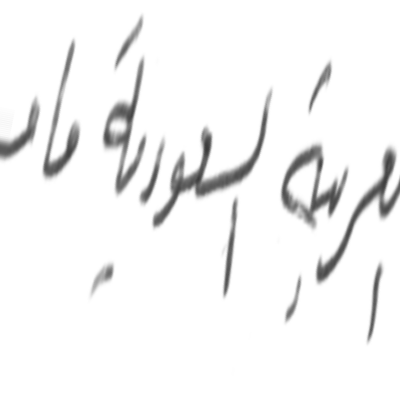 العربية السعودية